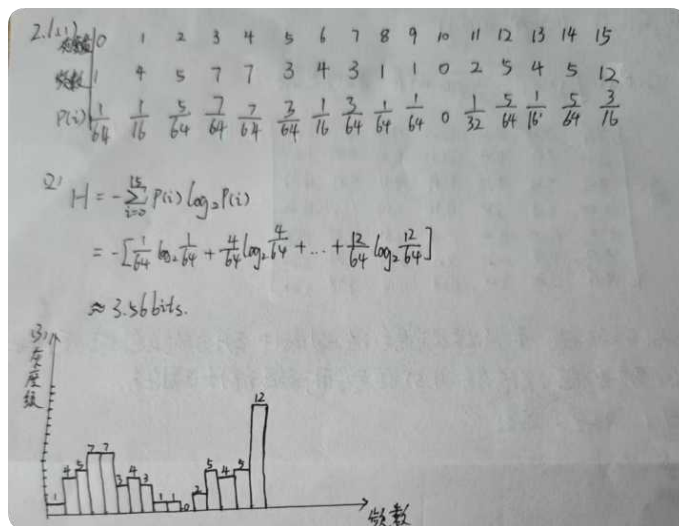 2.(1) 灰度 0 1 2 3 4 5 6 7 8 9 10 11 12 13 14 15
频数 1 4 5 7 7 3 4 3 1 1 0 2 5 4 5 12
P(i) 1/64 1/16 5/64 7/64 7/64 3/64 1/16 3/64 1/64 1/64 0 1/32 5/64 1/16 5/64 3/16
(2) H = -∑_{i=0}^{15} P(i) log₂ P(i)
= -[1/64 log₂ 1/64 + 4/64 log₂ 4/64 + ... + 12/64 log₂ 12/64]
≈ 3.56bits.
(3)
灰度级
1 4 5 7 7 3 4 3 1 1 0 2 5 4 5 12
频数